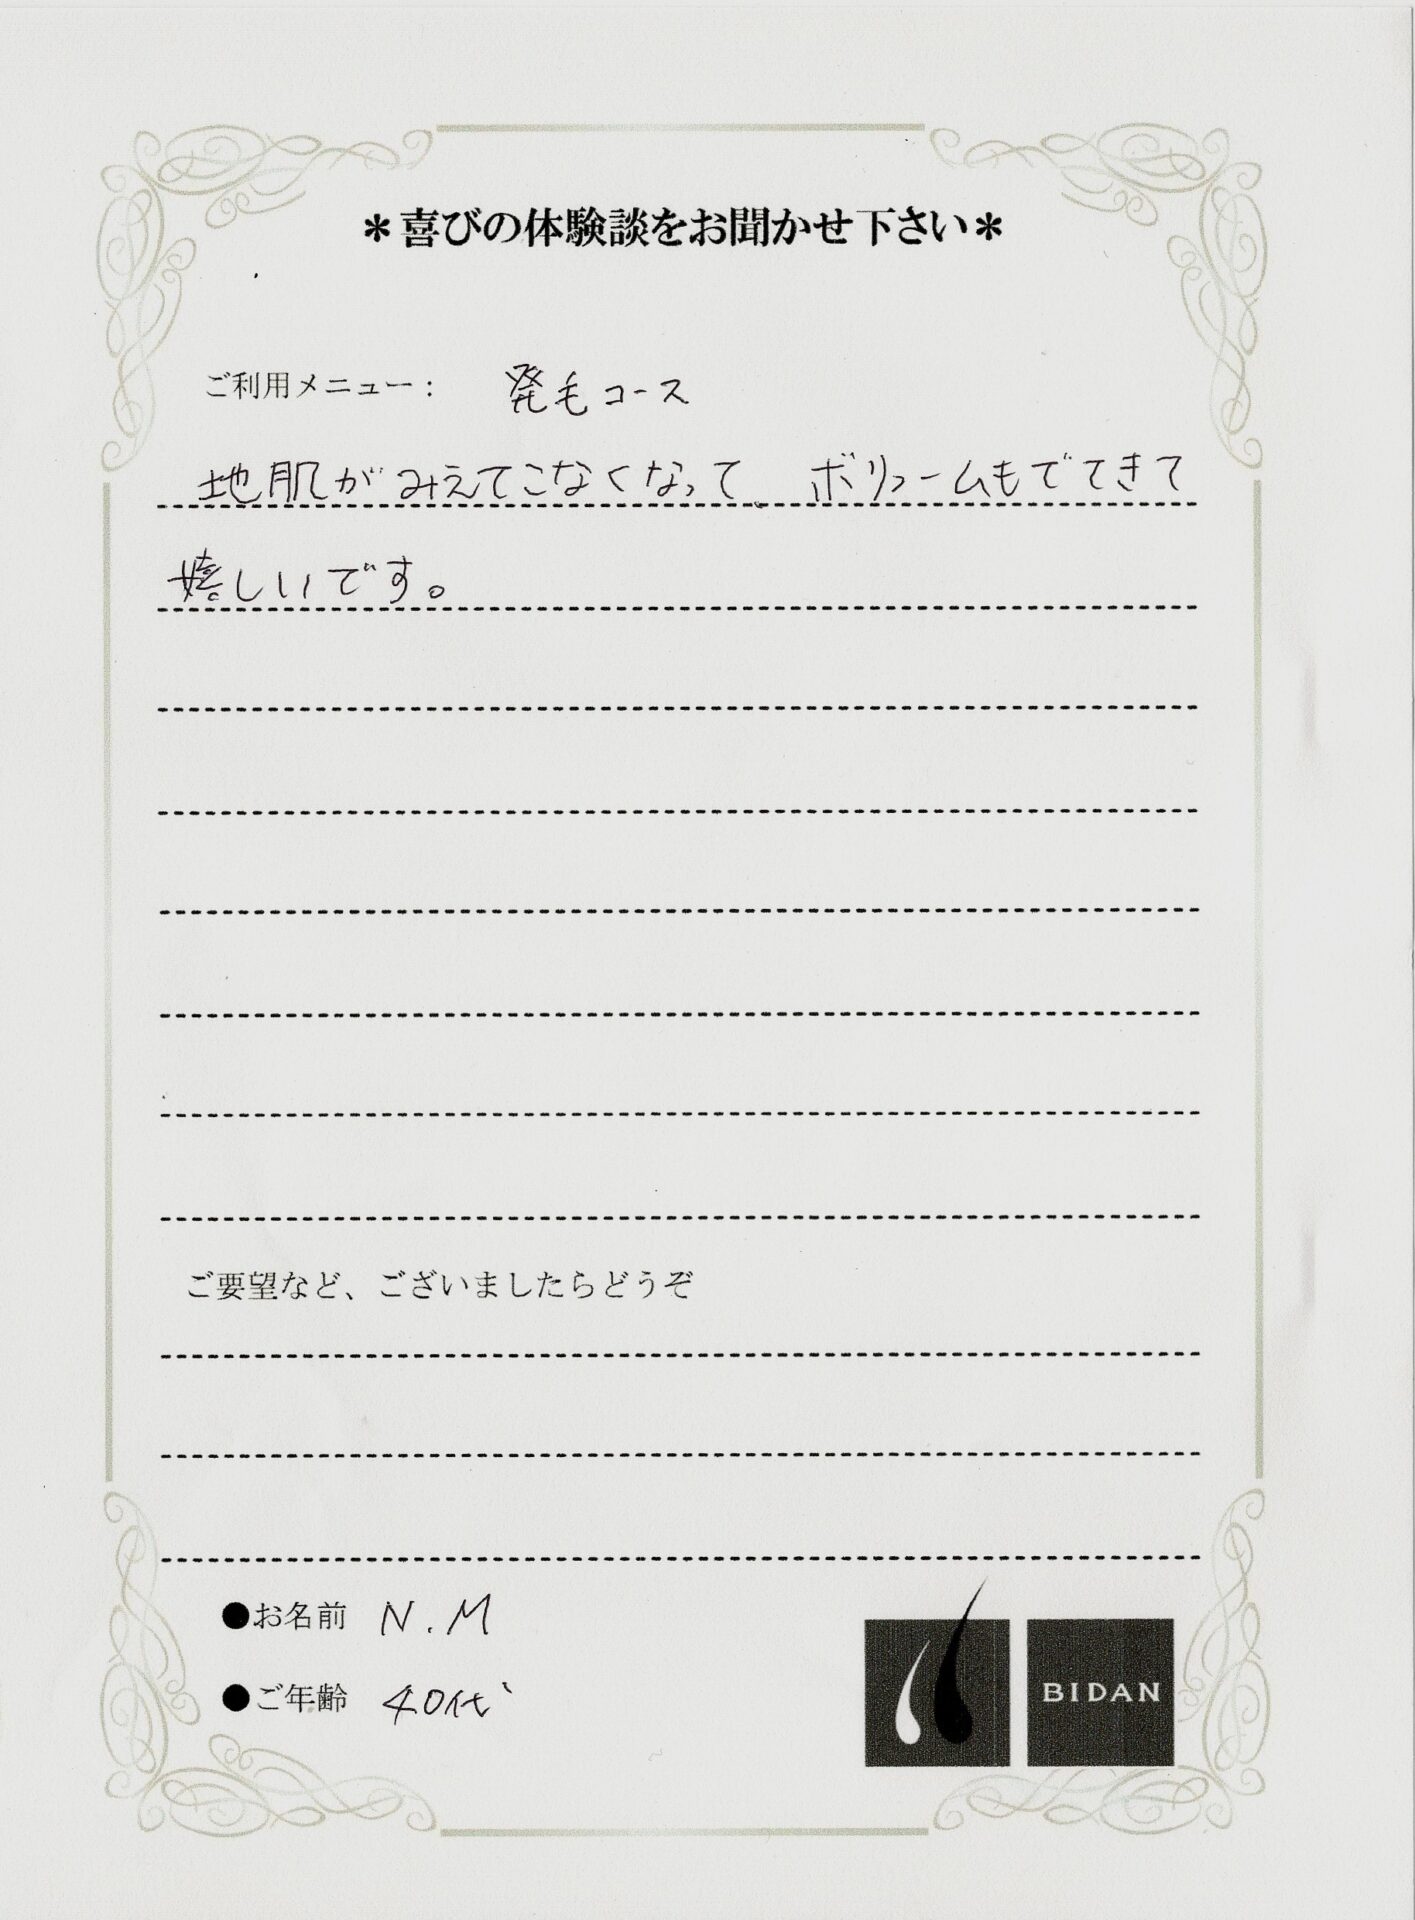 ＊喜びの体験談をお聞かせ下さい＊
ご利用メニュー： 発毛コース
地肌がみえてこなくなって、ボリュームもでてきて
嬉しいです。
ご要望など、ございましたらどうぞ
●お名前 N.M
●ご年齢 40代
BIDAN